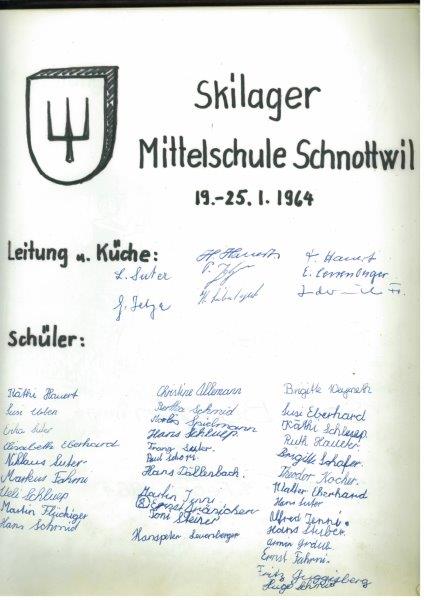 Skilager
Mittelschule Schnottwil
19.-25. 1. 1964
Leitung u. Küche:
H. Hauert
F. Hauert
L. Suter
Schüler:
Käthi Hauert
Susi
Suter
Elisabeth Eberhard
Niklaus Suter
Markus Fahrni
Ueli Schluep
Martin Flückiger
Hans Schmid
Christine Allemann
Bertha Schmid
Spielmann
Hans Schluep
Franz Suter
Paul
Hans Dällenbach
Martin Jenni
Ernst Kränichen
Toni Steiner
Hanspeter Leuenberger
Brigitte Weyeneth
Susi Eberhard
Käthi Schluep
Ruth
Brigitte Schafer
Theodor Kocher
Walter Eberhard
Hans Suter
Alfred Jenni
Hans Stuber
Armin
Ernst Fahrni
Fritz Zingisberg
Hugo Schmid